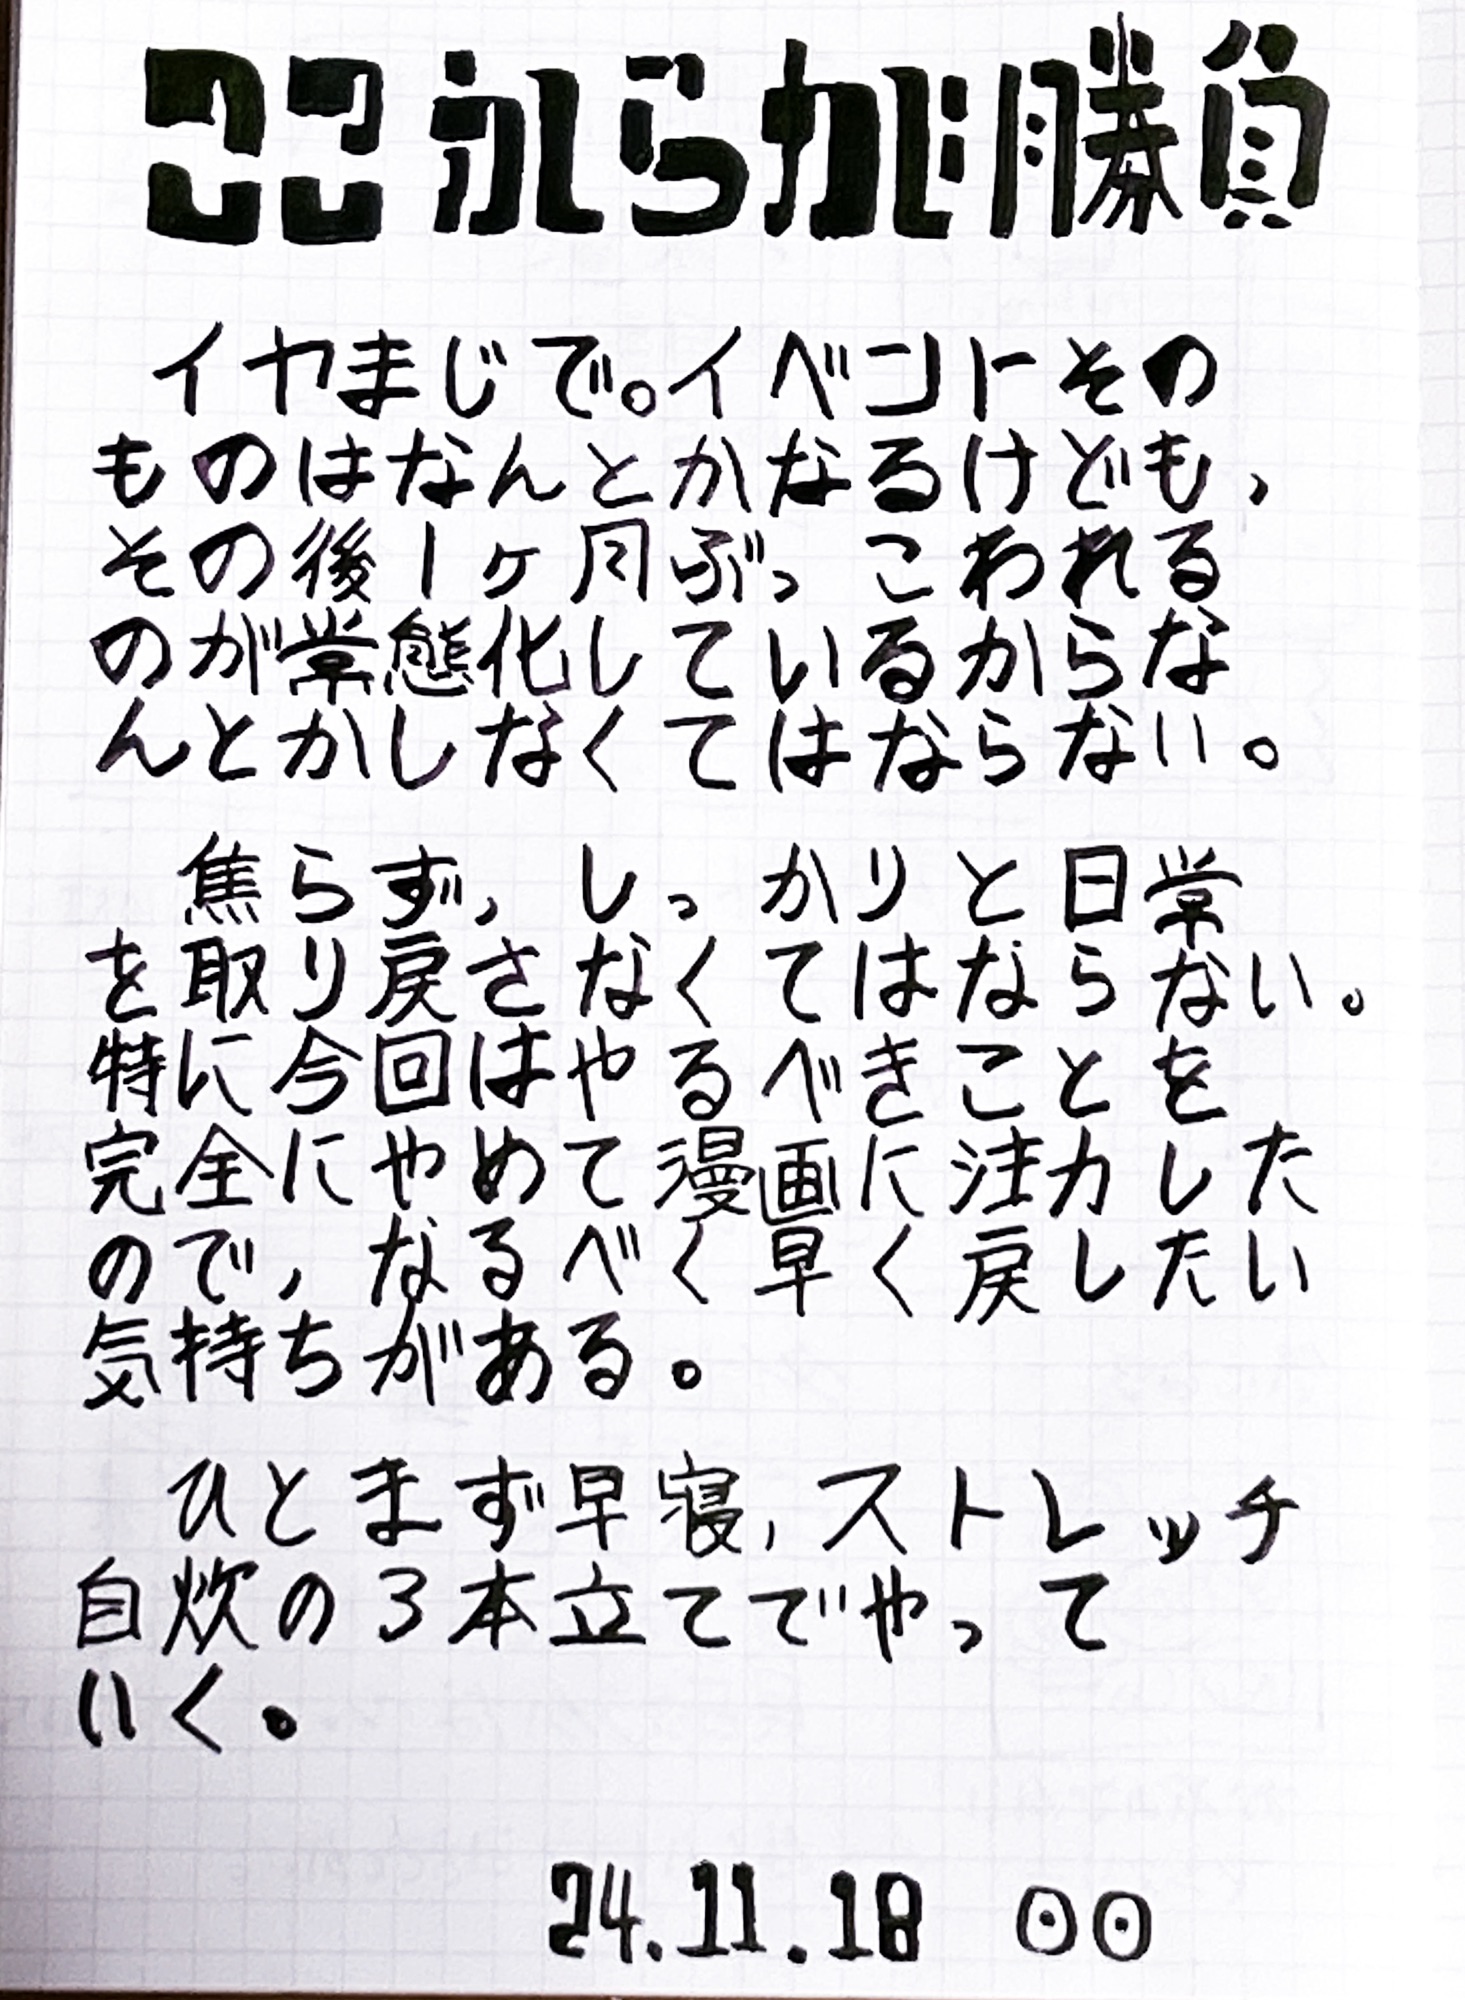 ここからが勝負
イヤまじで。イベントその
ものはなんとかなるけども,
その後1ヶ月ぶっこわれる
のが常態化しているからな
んとかしなくてはならない。
焦らず, しっかりと日常
を取り戻さなくてはならない。
特に今回はやるべきことを
完全にやめて漫画に注力した
ので, なるべく早く戻したい
気持ちがある。
ひとまず早寝, ストレッチ
自炊の3本立てでやって
いく。
24.11.18